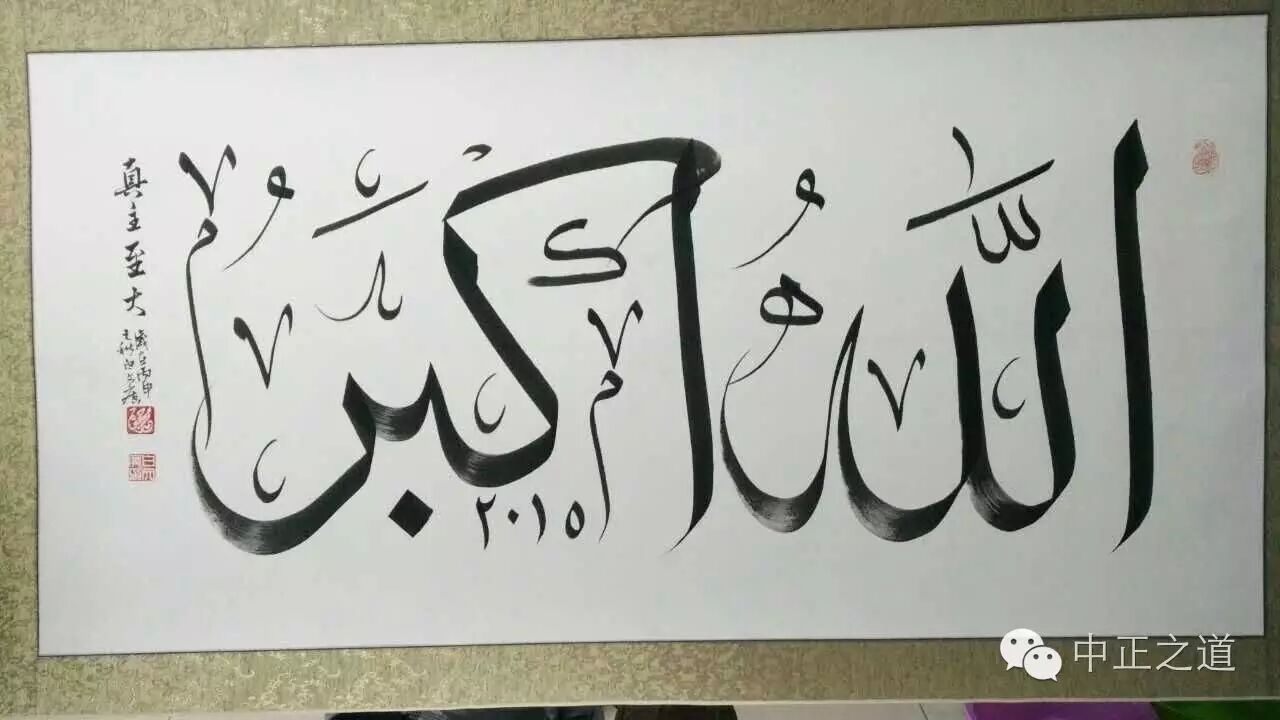 اللّٰهُ أَكْبَرُ
٢٠١٥
真主至大
歲在丙申
中正之道